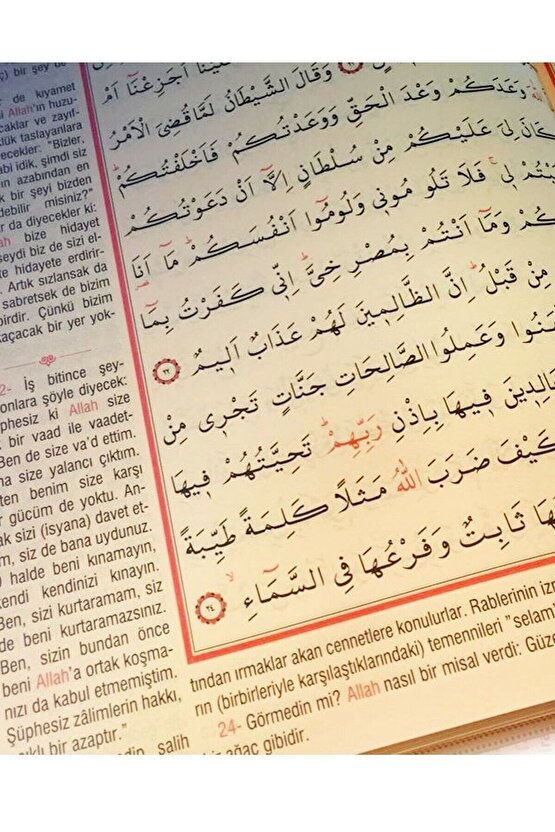 عَلَيْنَا اَجَزِعْنَا اَمْ
وَقَالَ الشَّيْطَانُ لَمَّا قُضِيَ الْاَمْرُ
اللّٰهَ وَعَدَكُمْ وَعْدَ الْحَقِّ وَوَعَدْتُكُمْ فَاَخْلَفْتُكُمْ
كَانَ لِيَ عَلَيْكُمْ مِنْ سُلْطَانٍ اِلَّٓا اَنْ دَعَوْتُكُمْ
لِي فَلَا تَلُومُونِي وَلُومُٓوا اَنْفُسَكُمْ مَٓا اَنَا۬
وَمَٓا اَنْتُمْ بِمُصْرِخِيَّ اِنِّي كَفَرْتُ بِمَٓا
مِنْ قَبْلُ اِنَّ الظَّالِمِينَ لَهُمْ عَذَابٌ اَلِيمٌ ٢٢
وَعَمِلُوا الصَّالِحَاتِ جَنَّاتٍ تَجْرِي مِنْ
فِيهَا بِاِذْنِ رَبِّهِمْ تَحِيَّتُهُمْ فِيهَا
كَيْفَ ضَرَبَ اللّٰهُ مَثَلًا كَلِمَةً طَيِّبَةً
ثَابِتٌ وَفَرْعُهَا فِي السَّمَٓاءِ ٢٤
bir şey de
de kıyamet
Allah'ın huzu-
caklar ve zayıf-
lük taslayanlara
ecekler: "Bizler,
abi idik, şimdi siz
n azabından en
k bir şeyi bizden
debilir misiniz?"
r da diyecekler ki:
ah bize hidayet
seydi biz de sizi el-
te hidayete erdirir-
. Artık sızlansak da
sabretsek de bizim
birdir. Çünkü bizim
kaçacak bir yer yok-
2- İş bitince şey-
onlara şöyle diyecek:
phesiz ki Allah size
k bir vaad ile vaadet-
Ben de size va'd ettim.
na size yalancı çıktım.
ten benim size karşı
r gücüm de yoktu. An-
ak sizi (isyana) davet et-
m, siz de bana uydunuz.
) halde beni kınamayın,
kendi kendinizi kınayın.
Ben, sizi kurtaramam, siz
de beni kurtaramazsınız.
Ben, sizin bundan önce
beni Allah'a ortak koşma-
nızı da kabul etmemiştim.
Şüphesiz zâlimlerin hakkı,
ıklı bir azaptır."
salih
tından ırmaklar akan cennetlere konulurlar. Rablerinin iz
rın (birbirleriyle karşılaştıklarındaki) temennileri "selam
24- Görmedin mi? Allah nasıl bir misal verdi: Güze
bir ağaç gibidir.